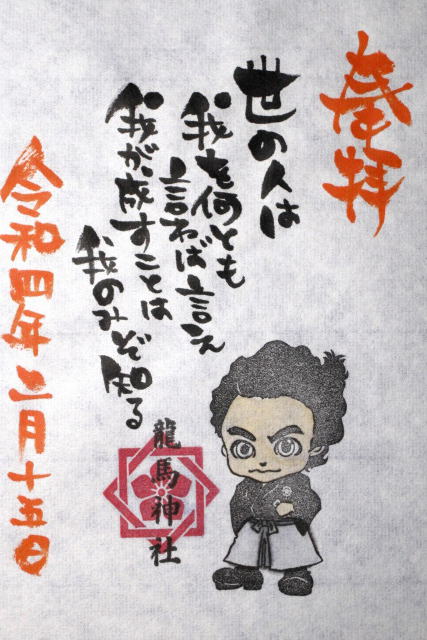 奉拝
世の人は
我を何とも
言わば言え
我が成すことは
我のみぞ知る
龍馬神社
令和四年二月十五日